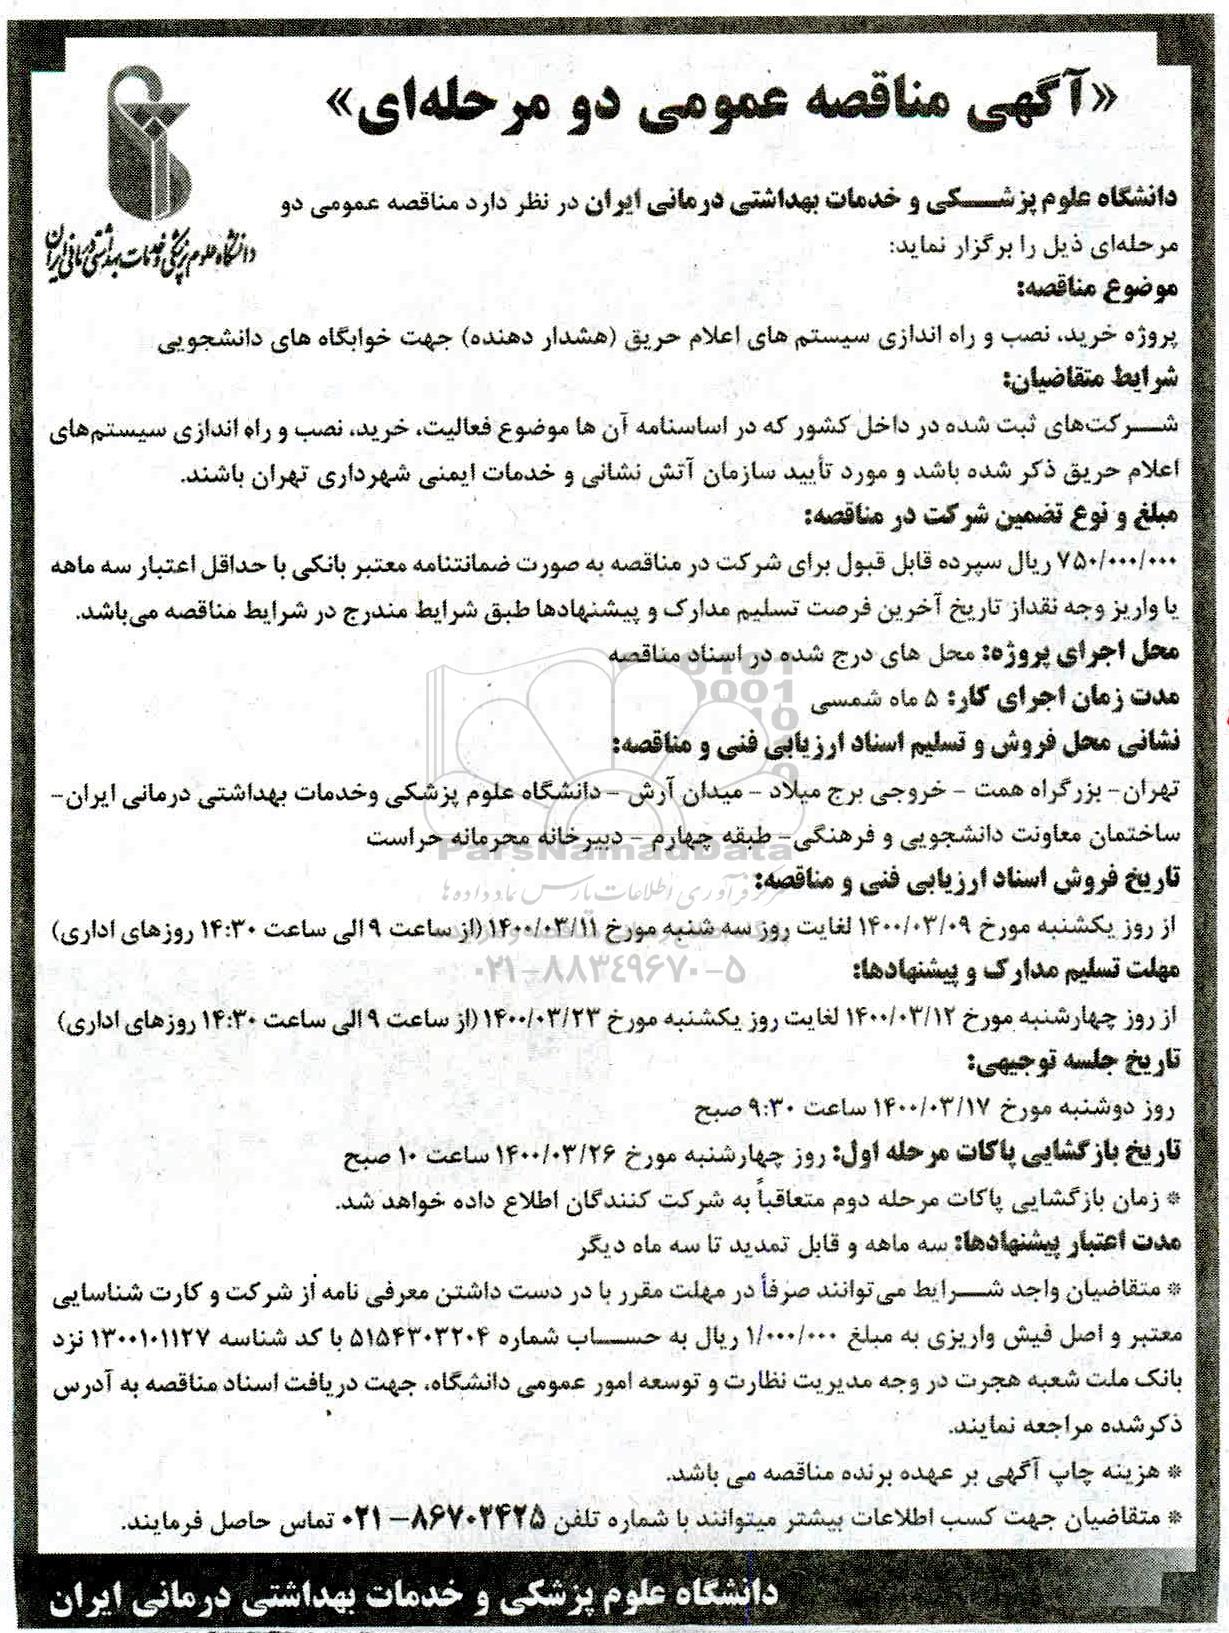 «آگهی مناقصه عمومی دو مرحله‌ای»
دانشگاه علوم پزشکی و خدمات بهداشتی درمانی ایران
دانشگاه علوم پزشکی و خدمات بهداشتی درمانی ایران در نظر دارد مناقصه عمومی دو
مرحله‌ای ذیل را برگزار نماید:
موضوع مناقصه:
پروژه خرید، نصب و راه اندازی سیستم های اعلام حریق (هشدار دهنده) جهت خوابگاه های دانشجویی
شرایط متقاضیان:
شرکت‌های ثبت شده در داخل کشور که در اساسنامه آن ها موضوع فعالیت، خرید، نصب و راه اندازی سیستم‌های
اعلام حریق ذکر شده باشد و مورد تأیید سازمان آتش نشانی و خدمات ایمنی شهرداری تهران باشند.
مبلغ و نوع تضمین شرکت در مناقصه:
۷۵۰/۰۰۰/۰۰۰ ریال سپرده قابل قبول برای شرکت در مناقصه به صورت ضمانتنامه معتبر بانکی با حداقل اعتبار سه ماهه
یا واریز وجه نقداز تاریخ آخرین فرصت تسلیم مدارک و پیشنهادها طبق شرایط مندرج در شرایط مناقصه می‌باشد.
محل اجرای پروژه: محل های درج شده در اسناد مناقصه
مدت زمان اجرای کار: ۵ ماه شمسی
نشانی محل فروش و تسلیم اسناد ارزیابی فنی و مناقصه:
تهران- بزرگراه همت - خروجی برج میلاد - میدان آرش - دانشگاه علوم پزشکی وخدمات بهداشتی درمانی ایران-
ساختمان معاونت دانشجویی و فرهنگی- طبقه چهارم - دبیرخانه محرمانه حراست
ParsNamadData
تاریخ فروش اسناد ارزیابی فنی و مناقصه:
مرکز فرآوری اطلاعات پارس نماد داده ها
از روز یکشنبه مورخ ۱۴۰۰/۰۳/۰۹ لغایت روز سه شنبه مورخ ۱۴۰۰/۰۳/۱۱ (از ساعت ۹ الی ساعت ۱۴:۳۰ روزهای اداری)
۰۲۱-۸۸۳۴۹۶۷۰-۵
مهلت تسلیم مدارک و پیشنهادها:
از روز چهارشنبه مورخ ۱۴۰۰/۰۳/۱۲ لغایت روز یکشنبه مورخ ۱۴۰۰/۰۳/۲۳ (از ساعت ۹ الی ساعت ۱۴:۳۰ روزهای اداری)
تاریخ جلسه توجیهی:
روز دوشنبه مورخ ۱۴۰۰/۰۳/۱۷ ساعت ۹:۳۰ صبح
تاریخ بازگشایی پاکات مرحله اول: روز چهارشنبه مورخ ۱۴۰۰/۰۳/۲۶ ساعت ۱۰ صبح
* زمان بازگشایی پاکات مرحله دوم متعاقباً به شرکت کنندگان اطلاع داده خواهد شد.
مدت اعتبار پیشنهادها: سه ماهه و قابل تمدید تا سه ماه دیگر
* متقاضیان واجد شرایط می‌توانند صرفأ در مهلت مقرر با در دست داشتن معرفی نامه از شرکت و کارت شناسایی
معتبر و اصل فیش واریزی به مبلغ ۱/۰۰۰/۰۰۰ ریال به حساب شماره ۵۱۵۴۳۰۳۲۰۴ با کد شناسه ۱۳۰۰۱۰۱۱۲۷ نزد
بانک ملت شعبه هجرت در وجه مدیریت نظارت و توسعه امور عمومی دانشگاه، جهت دریافت اسناد مناقصه به آدرس
ذکرشده مراجعه نمایند.
* هزینه چاپ آگهی بر عهده برنده مناقصه می باشد.
* متقاضیان جهت کسب اطلاعات بیشتر میتوانند با شماره تلفن ۸۶۷۰۳۴۲۵-۰۲۱ تماس حاصل فرمایند.
دانشگاه علوم پزشکی و خدمات بهداشتی درمانی ایران